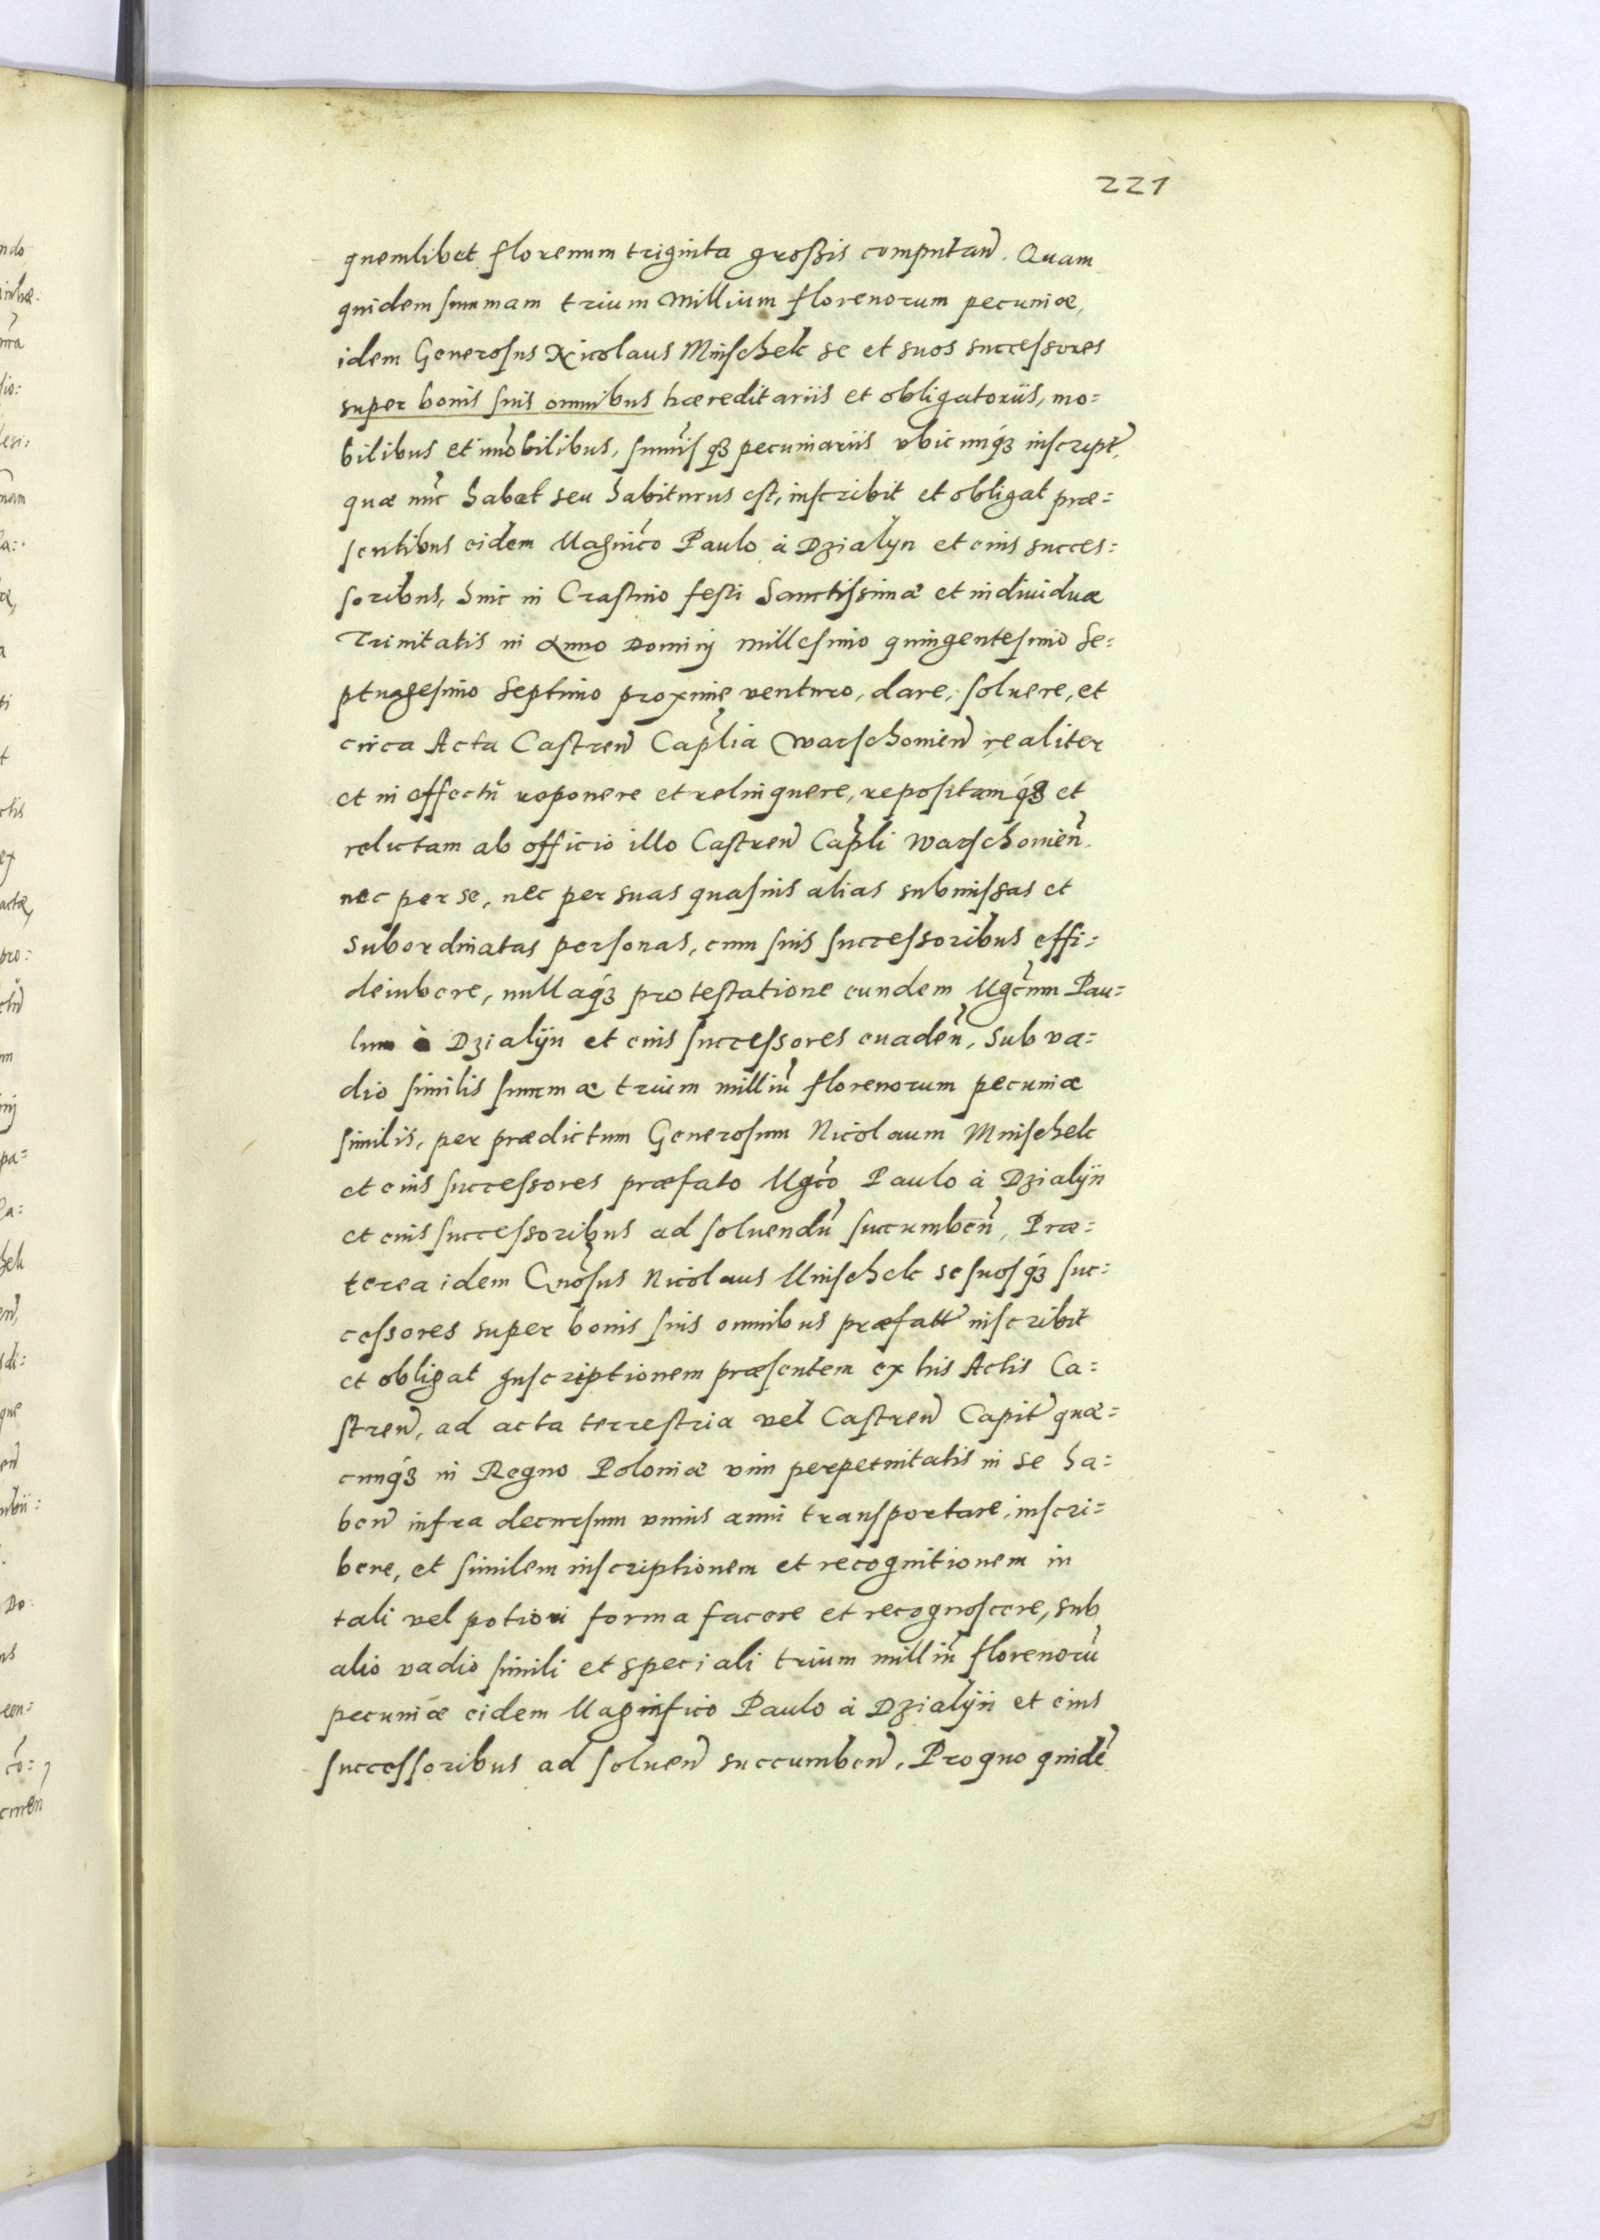 221
quemlibet florenum triginta grossis computan̄. Quam
quidem summam trium Millium florenorum pecuniæ,
idem Generosus Nicolaus Mnischek se et suos successores
super bonis suis omnibus hæreditariis et obligatoriis, mo=
bilibus et im̄obilibus, sum̄isqꝫ pecuniariis vbicunqꝫ inscript̄,
quæ nūc habet seu habiturus est, inscribit et obligat præ=
sentibus eidem Magnīco Paulo à Dzialyn et eius succes=
soribus, hinc in Crastino festi Sanctissimæ et indiuiduæ
Trinitatis in Anno Dominj millesimo quingentesimo Se=
ptuagesimo Septimo proxime venturo, dare, soluere, et
circa Acta Castren̄ Cap̄lia Warschouien̄ realiter
et in effectū reponere et relinquere, repositamqꝫ et
relictam ab officio illo Castren̄ Cap̄li Warschouien̄.
nec per se, nec per suas quasuis alias submissas et
subordinatas personas, cum suis successoribus effi=
deiubere, nullaqꝫ protestatione eundem Mgc̄um Pau=
lum à Dzialÿn et eius successores euaden̄, Sub va=
dio similis summæ trium milliū florenorum pecuniæ
similis, per prædictum Generosum Nicolaum Mnischek
et eius successores præfato Mgc̄o Paulo à Dzialÿn
et eius successoribus ad soluendū succumben̄, Præ=
terea idem Gn̄osus Nicolaus Mnischek se suosqꝫ suc=
cessores super bonis suis omnibus præfatt̄ inscribit
et obligat Inscriptionem præsentem ex his Actis Ca=
stren̄, ad acta terrestria vel Castren̄ Capit̄ quæ=
cunqꝫ in Regno Poloniæ vim perpetuitatis in se ha=
ben̄ infra decursum vnius anni transportare, inscri=
bere, et similem inscriptionem et recognitionem in
tali vel potiori forma facere et recognoscere, sub
alio vadio simili et speciali trium milliū florenorū
pecuniæ eidem Magnifico Paulo à Dzialÿn et eius
successoribus ad soluen̄ succumben̄. Pro quo quidē